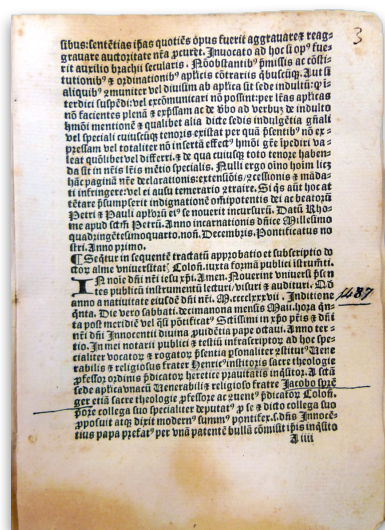 3
sibus: sentētias ip̄as quotiēs opus fuerit aggrauare ⁊ reag⸗
grauare auctoritate nr̄a ꝓcuret. Inuocato ad hoc si op⁹ fue⸗
rit auxilio brachii secularis. Nō obstantib⁹ p̄missis ac cōsti⸗
tutionib⁹ ⁊ ordinationib⁹ aplicis cōtrariis q̄buscūq̨. Aut si
aliquib⁹ ꝯmuniter vel diuisim ab aplica sit sede indultū: ꝙ i̅⸗
terdici suspēdi: vel excōmunicari nō possint: per lr̄as aplicas
nō facientes plenā ⁊ exp̄ssam ac de v̄bo ad verbuꝫ de indulto
hmōi mentionē ⁊ qualibet alia dicte sedis indulgētia gn̄ali
vel speciali cuiuscūq̨ tenoris existat per quā p̄sentib⁹ nō ex⸗
pressam vel totaliter nō insertā effect⁹ hmōi gr̄e īpediri va⸗
leat quōlibet vel differri. ⁊ de qua cuiusq̨ toto tenoꝛe haben⸗
da sit in nr̄is lr̄is mētio specialis. Nulli ergo oīno hoīm liceat
hāc paginā nr̄e declarationis: extensiōis: ꝯcessionis ⁊ māda⸗
ti infringere: vel ei ausu temerario ꝯtraire. Si q̄s aūt hoc at
tētare p̄sumpserit indignationē oīpotentis dei ac beatoꝝ
Petri ⁊ Pauli aploꝝ ei⁹ se nouerit incursurū. Datū Rho⸗
me apud sctm̄ Petrū. Anno incarnationis dn̄ice Millesimo
quadringētesimoquarto. nō. Decembris. Pontificatus no⸗
stri. Anno primo.
¶ Seq̄tur in sequentē tractatū approbatio et subscriptio do
ctoꝝ alme vniuersitat⁹ Coloñ. iuxta formā publici istrumēti.
IN noīe dn̄i nr̄i iesu xp̄i. Amen. Nouerint vniuersi p̄n
tes publicū instrumentū lecturi / visuri ⁊ audituri. Q̊d
anno a natiuitate eiusdē dn̄i nr̄i. M.cccclxxxvii. Inditione
1487
q̄nta. Die vero sabbati. decimanona mensis Maii. hora q̄n⸗
ta post meridiē vel q̄si pōtificat⁹ Sctissimi in xp̄o pr̄is ⁊ dn̄i
nr̄i dn̄i Innocentii diuina ꝓuidētia pape octaui. Anno ter⸗
tio. In mei notarii publici ⁊ testiū infrascriptoꝝ ad hoc spe⸗
cialiter vocatoꝝ ⁊ rogatoꝝ p̄sentia p̄sonaliter ꝯstitut⁹ Uene
rabilis ⁊ religiosus frater Henric⁹ institoris sacre theologie
ꝓfessor ordinis p̄dicatoꝝ heretice prauitatis inq̄sitor. A sctā
sede aplica vnacū Uenerabili ⁊ religioso fratre Jacobo sprē
ger etiā sacre theologie ꝓfessore ac ꝯuent⁹ p̄dicatoꝝ Coloñ.
pore collega suo specialiter deputat⁹ ꝓ se ⁊ dicto collega suo
ꝓposuit atq̨ dixit modern⁹ summ⁹ pontifex. s. dn̄s Innocē⸗
tius papa p̄fat⁹ per vnā patentē bullā cōmisit ip̄is inq̄sito
A iiii